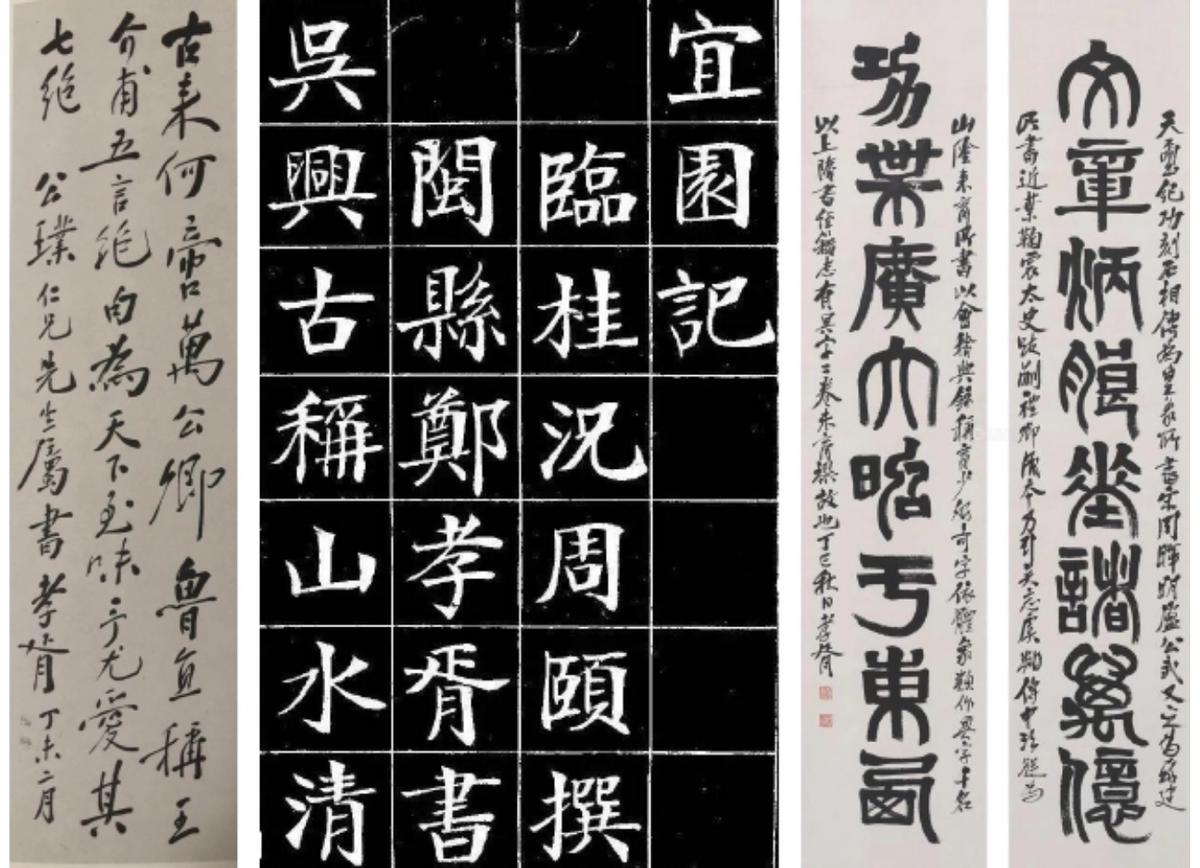 古来何啻萬公卿魯直稱王
介甫五言絕句為天下至味予尤愛其
七絕 公璞仁兄先生屬書孝胥 丁未二月
宜園記
臨桂況周頤撰
閩縣鄭孝胥書
吳興古稱山水清
天璽紀功刻石相傳為皇象所書宋周暉明盛公武又云為蘇建
文章炳朖垂諸萬億
所書近葉鞠裳太史跋蒯禮卿藏本力引吳志虞翻傳中語題為
山陰朱育所書以會稽典錄稱育少好奇字依體象類作異字千名
功業廣大昭于東西
以上隋書經籍志有異字二卷朱育撰故也丁巳秋日孝胥